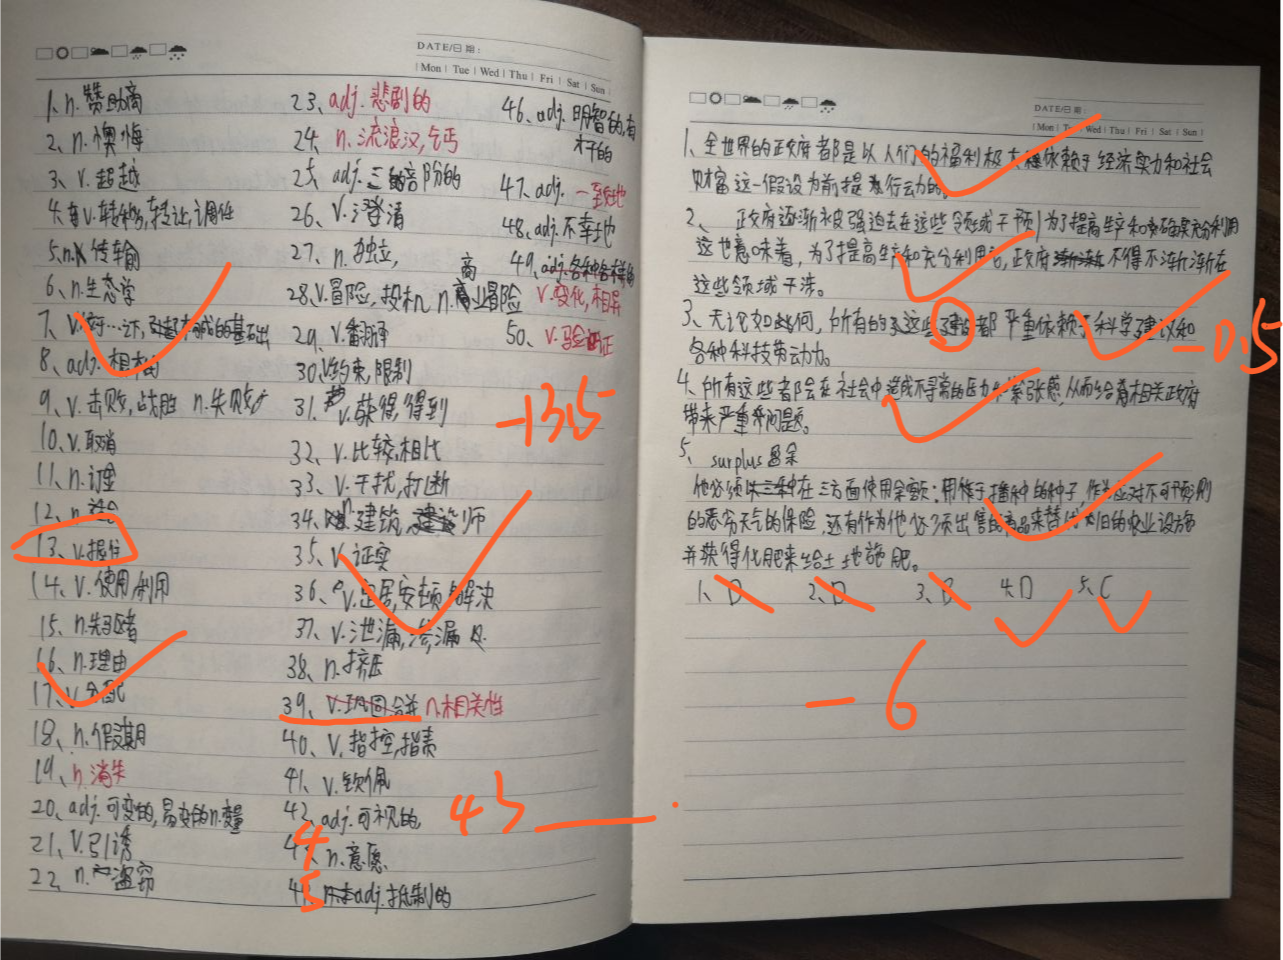 DATE/日期:
Mon Tue Wed Thu Fri Sat Sun
1、n.赞助商
2、n.懊悔
3、v.超越
4、v.转移,转让,调任
5、n. 传输
6、n.生态学
7、v.
8、adj.相
9、v.击败,战胜 n.失败
10、v.取消
11、n.订金
12、n.
13、v.握住
14、v.使用,利用
15、n.先驱者
16、n.理由
17、v.分配
18、n.假期
19、n.消失
20、adj.可变的,易变的n.变量
21、v.引诱
22、n.盗窃
23、adj.悲剧的
24、n.流浪汉,乞丐
25、adj.三阶的
26、v.澄清
27、n.独立,
28、v.冒险,投机 n.商业冒险
29、v.翻
30、v约束,限制
31、v.获得,得到
32、v.比较,相比
33、v.干扰,打断
34、n建筑,师
35、v.证实
36、v.定居,安顿,解决
37、v.泄漏,渗漏
38、n.挤压
39、v.巩固,合并 n.相关性
40、v.指控,指责
41、v.钦佩
42、adj.可视的,
43
44、n.意愿
45、adj.抵制的
46、adj.明智的,有
才干的
47、adj.一致地
48、adj.不幸地
49、adj.各种各样的
v.变化,相异
50、v.验证
-13.5
DATE/日期:
Mon Tue Wed Thu Fri Sat Sun
1、全世界的政府都是以人们的福利极大依赖于经济实力和社会
财富这一假设为前提行动的
2、政府逐渐被强迫去在这些领域干预,为了提高生产和确保充分利用
这也意味着,为了提高生产和充分利用,政府不得不渐渐在
这些领域干涉。
3、无论如何,所有的这些都严重依赖于科学建议和
各种科技带动力。
-0.5
4、所有这些都会在社会中造成不寻常的压力和紧张感,从而给相关政府
带来严重问题。
5、surplus 盈余
他必须在三方面使用余额:用作于播种的种子,作为应对不可预测
的恶劣天气的保险,还有作为他必须出售的商品来替代旧的农业设施
并获得化肥来给土地施肥。
1、D 2、D 3、B 4、D 5、C
-6